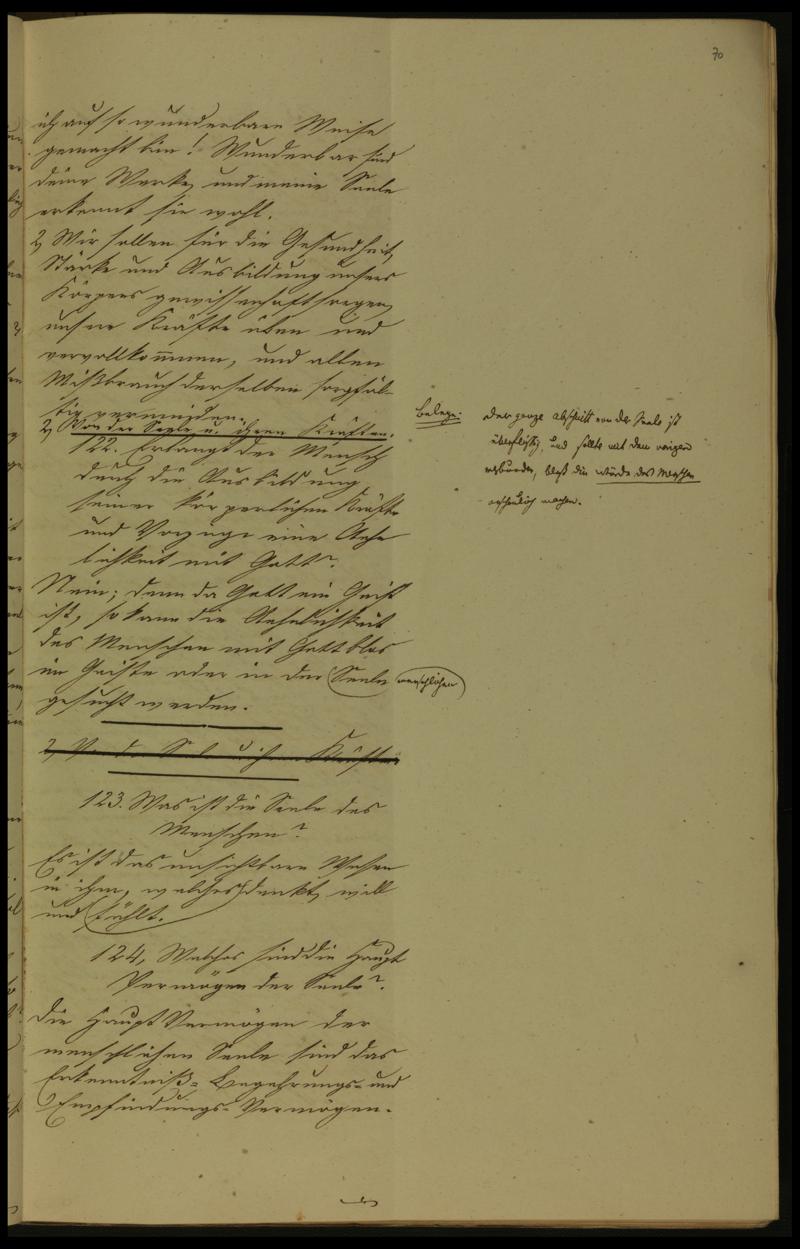 70
ich auf so wunderbare Weise
gemacht bin! Wunderbar sind
deine Werke, und meine Seele
erkennt sie wohl.
2, Wir sollen für die Gesundheit,
Stärke und Ausbildung unsers
Körpers gewissenhaft sorgen,
unsere Kräfte üben und
vervollkom̅nen, und allen
Mißbrauch derselben sorgfäl-
tig vermeiden.
2, Von der Seele u. ihren Kräften.
122. Erlangt der Mensch
durch die Ausbildung
seiner körperlichen Kräfte
und Vorzüge eine Aehn
lichkeit mit Gott?
Nein; denn da Gott ein Geist
ist, so kann die Aehnlichkeit
des Menschen mit Gott blos
im Geiste oder in der Seele menschlichen
gesucht werden.
2, Von der Seele u. ihren Kräften
123. Was ist die Seele des
Menschen?
Es ist das unsichtbare Wesen
in ihm, welches denkt, will
und fühlt.
124, Welches sind die Haupt
Vermögen der Seele?
Die Haupt Vermögen der
menschlichen Seele sind das
Erkenntniß- Begehrungs- und
Empfindungs-Vermögen.
der ganze Abschnitt von der Seele ist
überflüßig, und sollte mit dem vorigen
verbunden, bloß die Würde des Menschen
anschaulich machen.